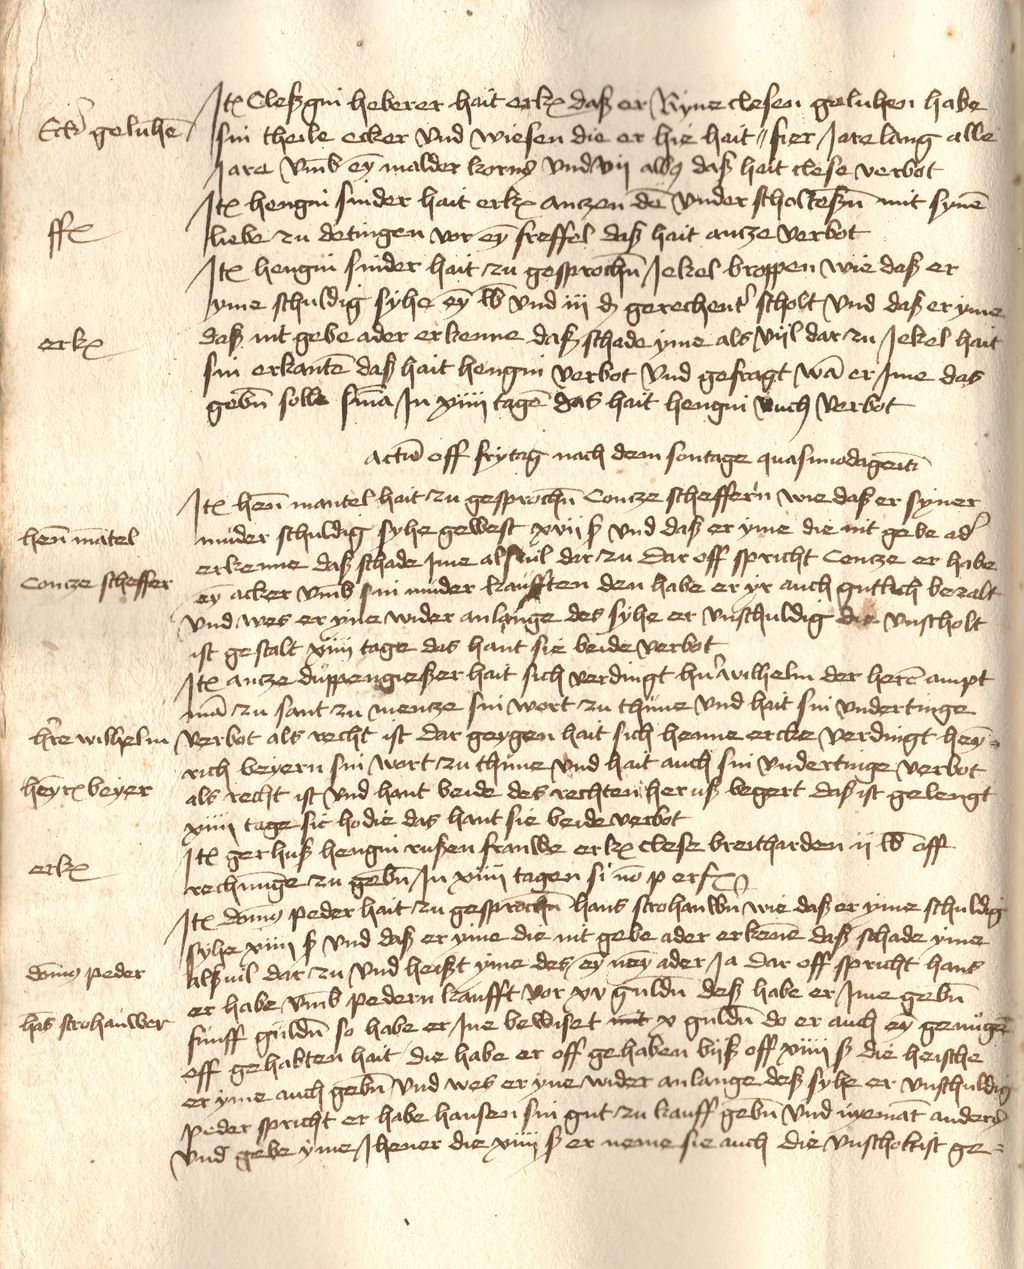 Ecker geluhē
Itē Cleßgin heberer hait erkē daß er Ryne clesen geluhen habe
sin theile ecker vnd wiesen die er hie hait fier Jare lang alle
Jare vmb eȳ malder korns vnd vii daß hait clese verbot
ffē
Itē hengin sinder hait erkē anczen dē vnder scholteßn mit synē
liebe zu detingen vor eȳ freffel daß hait ancze verbot
Itē hengin sinder hait zu gesprochn Jekel broppen wie daß er
yme schuldig syhe eȳ lb vnd iii d gerechenter scholt vnd daß er yme
erkē
daß nit gebe ader erkenne daß schade yme als vijl dar zu Jekel hait
sin erkantē daß hait hengin verbot vnd gefragt wā er Ime das
gebn solle sniā In xiiii tagē das hait hengin auch verbot
actū off frytag nach dem sontage quasimodageniti
Itē henn mantel hait zu gesprochn Concze scheffern wie daß er syner
henn mātel
muder schuldig syhe gewest xvii ß vnd daß er yme die nit gebe ader
Concze scheffer
erkenne daß schade Ime alß vil dar zu dar off spricht Concze er habe
eȳ acker vmb sin muder kaufften den habe er yr auch gutlich bezalt
vnd wes er yne wider anlange des syhe er vnschuldig die vnscholt
ist gestalt xiiii tage das hant sie beide verbot
Itē ancze duppengießer hait sich verdingt hern wilhelm der herē ampt
mā zu sant zu mencze sin wort zu thune vnd hait sin vndertinge
here wilhelm
verbot als recht ist dar geygen hait sich henne ercke verdingt heȳ=
rich beyern sin wort zu thune vnd hait auch sin vndertinge verbot
heȳrē beyer
als recht ist vnd hant beide des rechten her uß begert daß ist gelengt
xiiii tage sic hodie das hant sie beide verbot
Itē gerhuß hengin rußen frauwe erkē clese breitharden ii lb off
erkē
rechnūge zu gebn In xiiii tagen si nō p erfē
Itē dōms peder hait zu gesprochn hans strohauwn wie daß er yme schuldig
syhe xiiii ß vnd daß er yme die nit gebe ader erkēne daß schade yme
dōms peder
alß vil dar zu vnd heißt yme des eȳ neȳ ader Ja dar off spricht hans
er habe vmb pedern kaufft vor xv guldn deß habe er Ime gebn
hās strohauwer
funff guldn so habe er Ine bewiset x guldn do er auch eȳ genugē
off gehabten hait die habe er off gehaben bijß off xiiii ß die heische
er yme auch gebn vnd wes er yne wider anlange deß syhe er vnschuldig
peder spricht er habe hansen sin gut zu kauff gebn vnd nyemāt anders
vnd gebe yme Jhener die xiiii ß er neme sie auch die vnscholt ist ge=